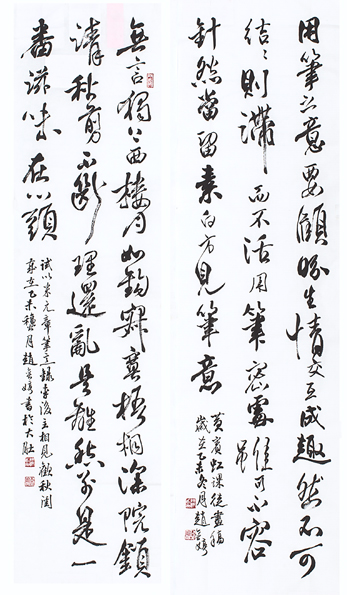 用筆之意要顧盼生情交互成趣然不可
結結則滯而不活用筆密處雖可不容
針然當留素白方見筆意
黃賓虹課徒畫稿
歲在乙未冬月趙婷
無言獨上西樓月如鉤寂寞梧桐深院鎖
清秋剪不斷理還亂是離愁別是一
番滋味在心頭
試以米元章筆意錄李後主相見歡秋閨
歲在乙未月趙婷書於大肚